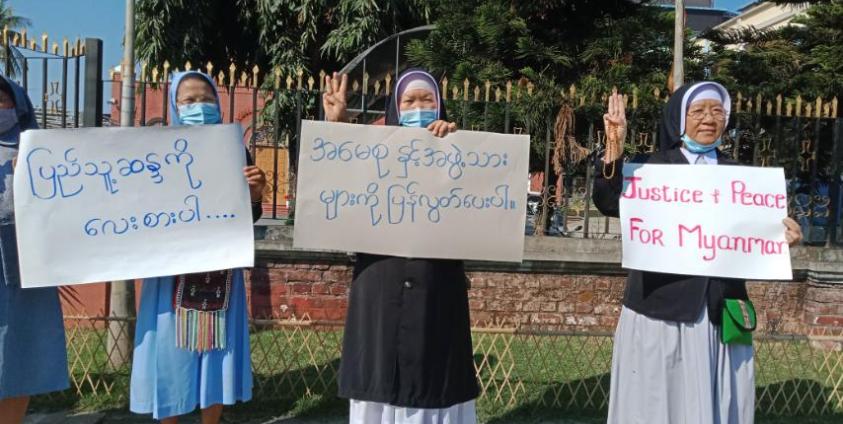 ပြည်သူ့ဆန္ဒကို
လေးစားပါ....
အမေစု နှင့်အဖွဲ့သား
များကို ပြန်လွှတ်ပေးပါ။
Justice + Peace
For Myanmar